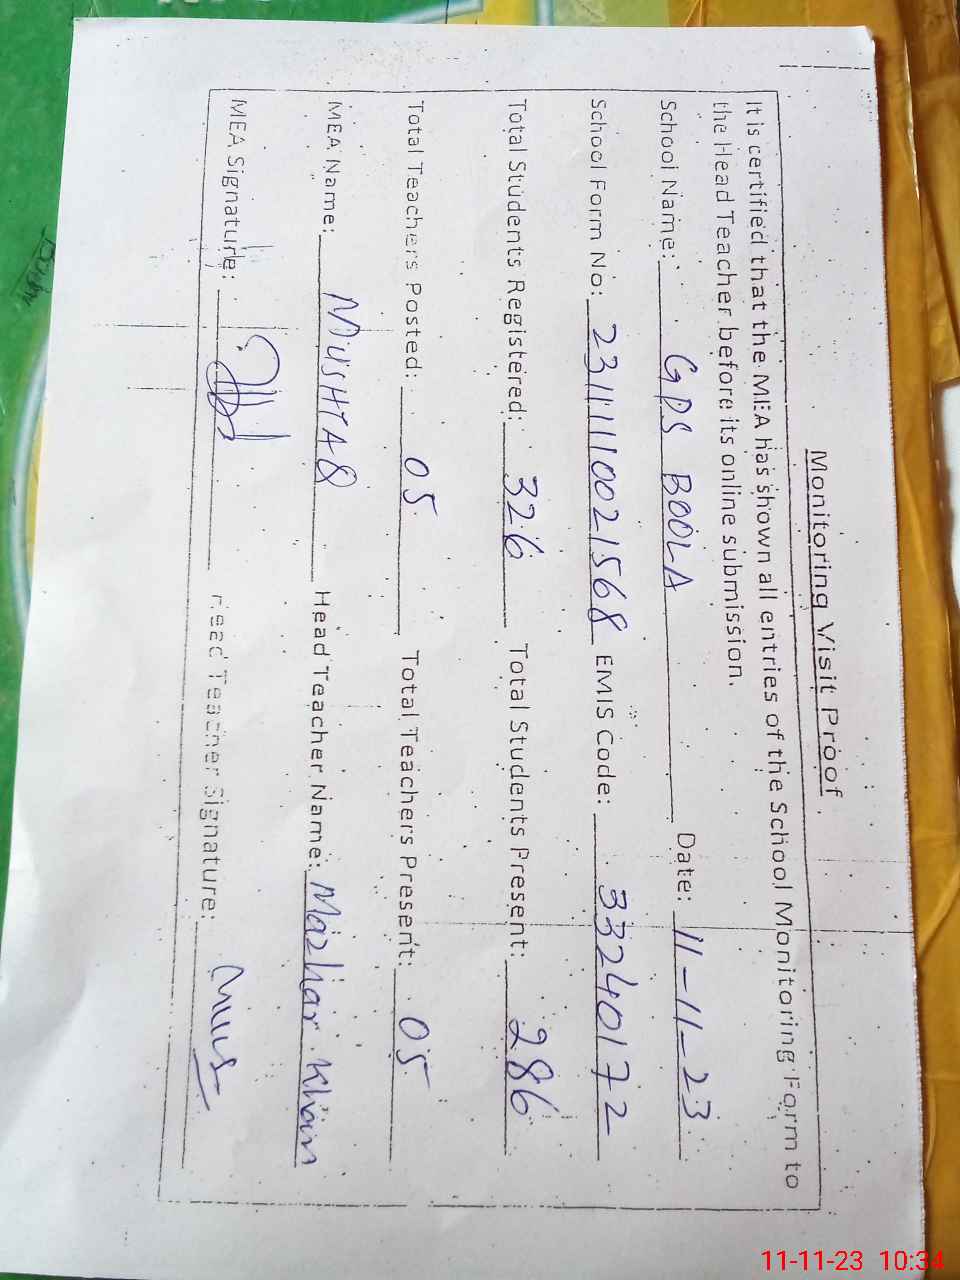 Monitoring Visit Proof
It is certified that the MEA has shown all entries of the School Monitoring Form to
the Head Teacher before its online submission.
School Name: GPS BOOLA Date: 11-11-23
School Form No: 2311110021568 EMIS Code: 33240172
Total Students Registered: 326 Total Students Present: 286
Total Teachers Posted: 05 Total Teachers Present: 05
MEA Name: MUSHTAQ Head Teacher Name: Mazhar Khan
MEA Signature: Head Teacher Signature:
11-11-23 10:34